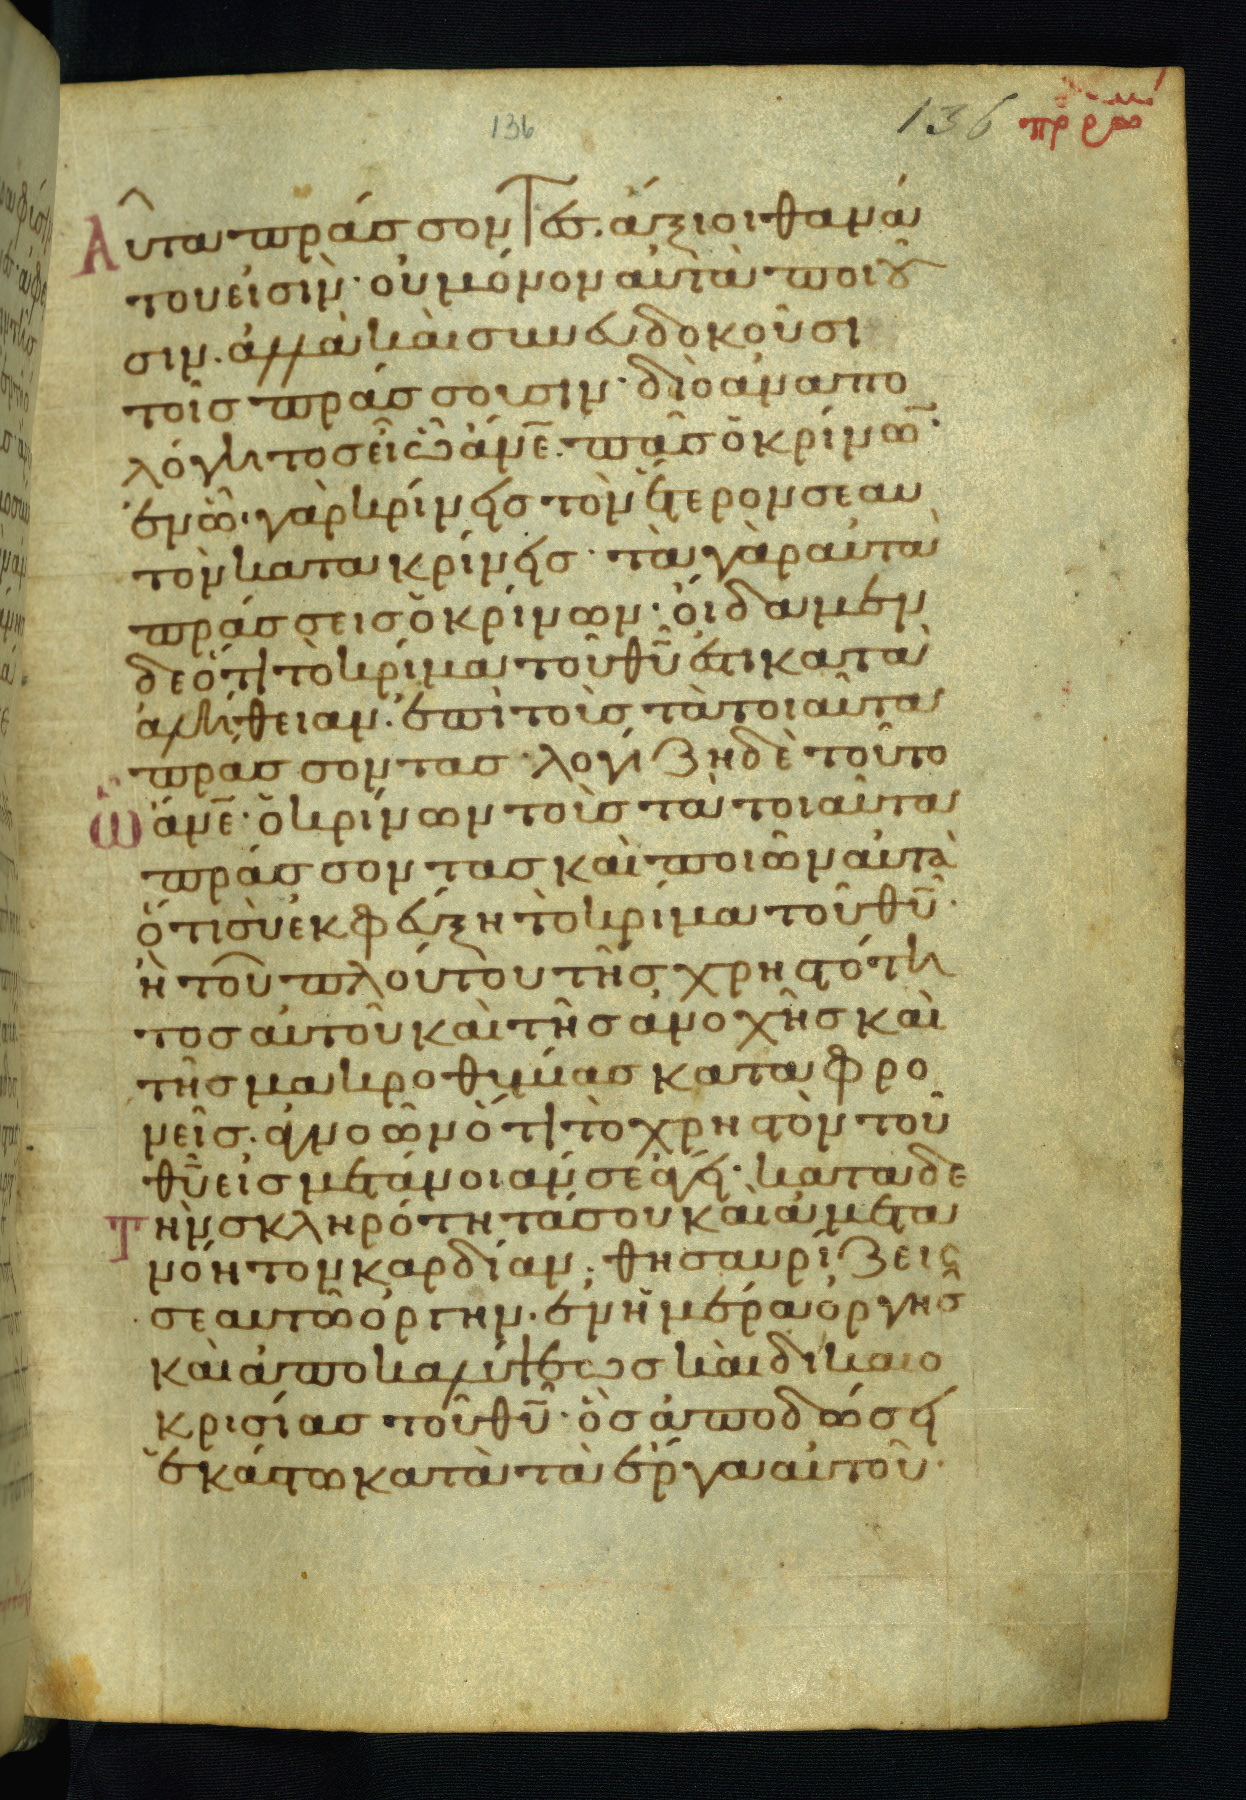 136
136
Αὐτα πράσσοντες. ἄξιοι θανά
του εἰσὶν· οὐ μόνον αὐτὰ ποιοῦ
σιν. ἀλλὰ καὶ συνευδοκοῦσι
τοῖς πράσσουσιν· διὸ ἀναπο
λόγητος εἶ ὦ ἄνε̅. πᾶς ὁ κρίνω̅·
ἐν ᾧ· γὰρ κρίνεις τὸν ἕτερον σεαυ
τὸν κατακρίνεις· τὰ γὰρ αὐτὰ
πράσσεις ὁ κρίνων· οἴδαμεν
δε ὅτι τὸ κρίμα τοῦ θυ̅ ἐστι κατὰ
ἀλήθειαν. ἐπὶ τοὺς τὰ τοιαῦτα
πράσσοντας· λογίζη δὲ τοῦτο
ὦ ἄνε̅· ὁ κρίνων τοὺς τὰ τοιαῦτα
πράσσοντας καὶ ποιῶν αὐτὰ
ὅτι σὺ ἐκφεύξη τὸ κρίμα τοῦ θυ̅·
ἢ τοῦ πλούτου τῆς χρηστότη
τος αὐτοῦ καὶ τῆς ἀνοχῆς καὶ
τῆς μακροθυμίας καταφρο
νεῖς. ἀγνοῶν ὅτι τὸ χρηστὸν τοῦ
θυ̅ εἰς μετάνοιάν σε ἄγει· κατα δε
Τὴν σκληρότητά σου καὶ ἀμετα
νόητον καρδίαν. θησαυρίζεις
σεαυτῶ ὀργην. ἐν ἡμέρα ὀργῆς
καὶ ἀποκαλύψεως καὶ δικαιο
κρισίας τοῦ θυ̅· ὃς ἀποδώσει
ἑκάστω κατὰ τὰ ἔργα αὐτοῦ·